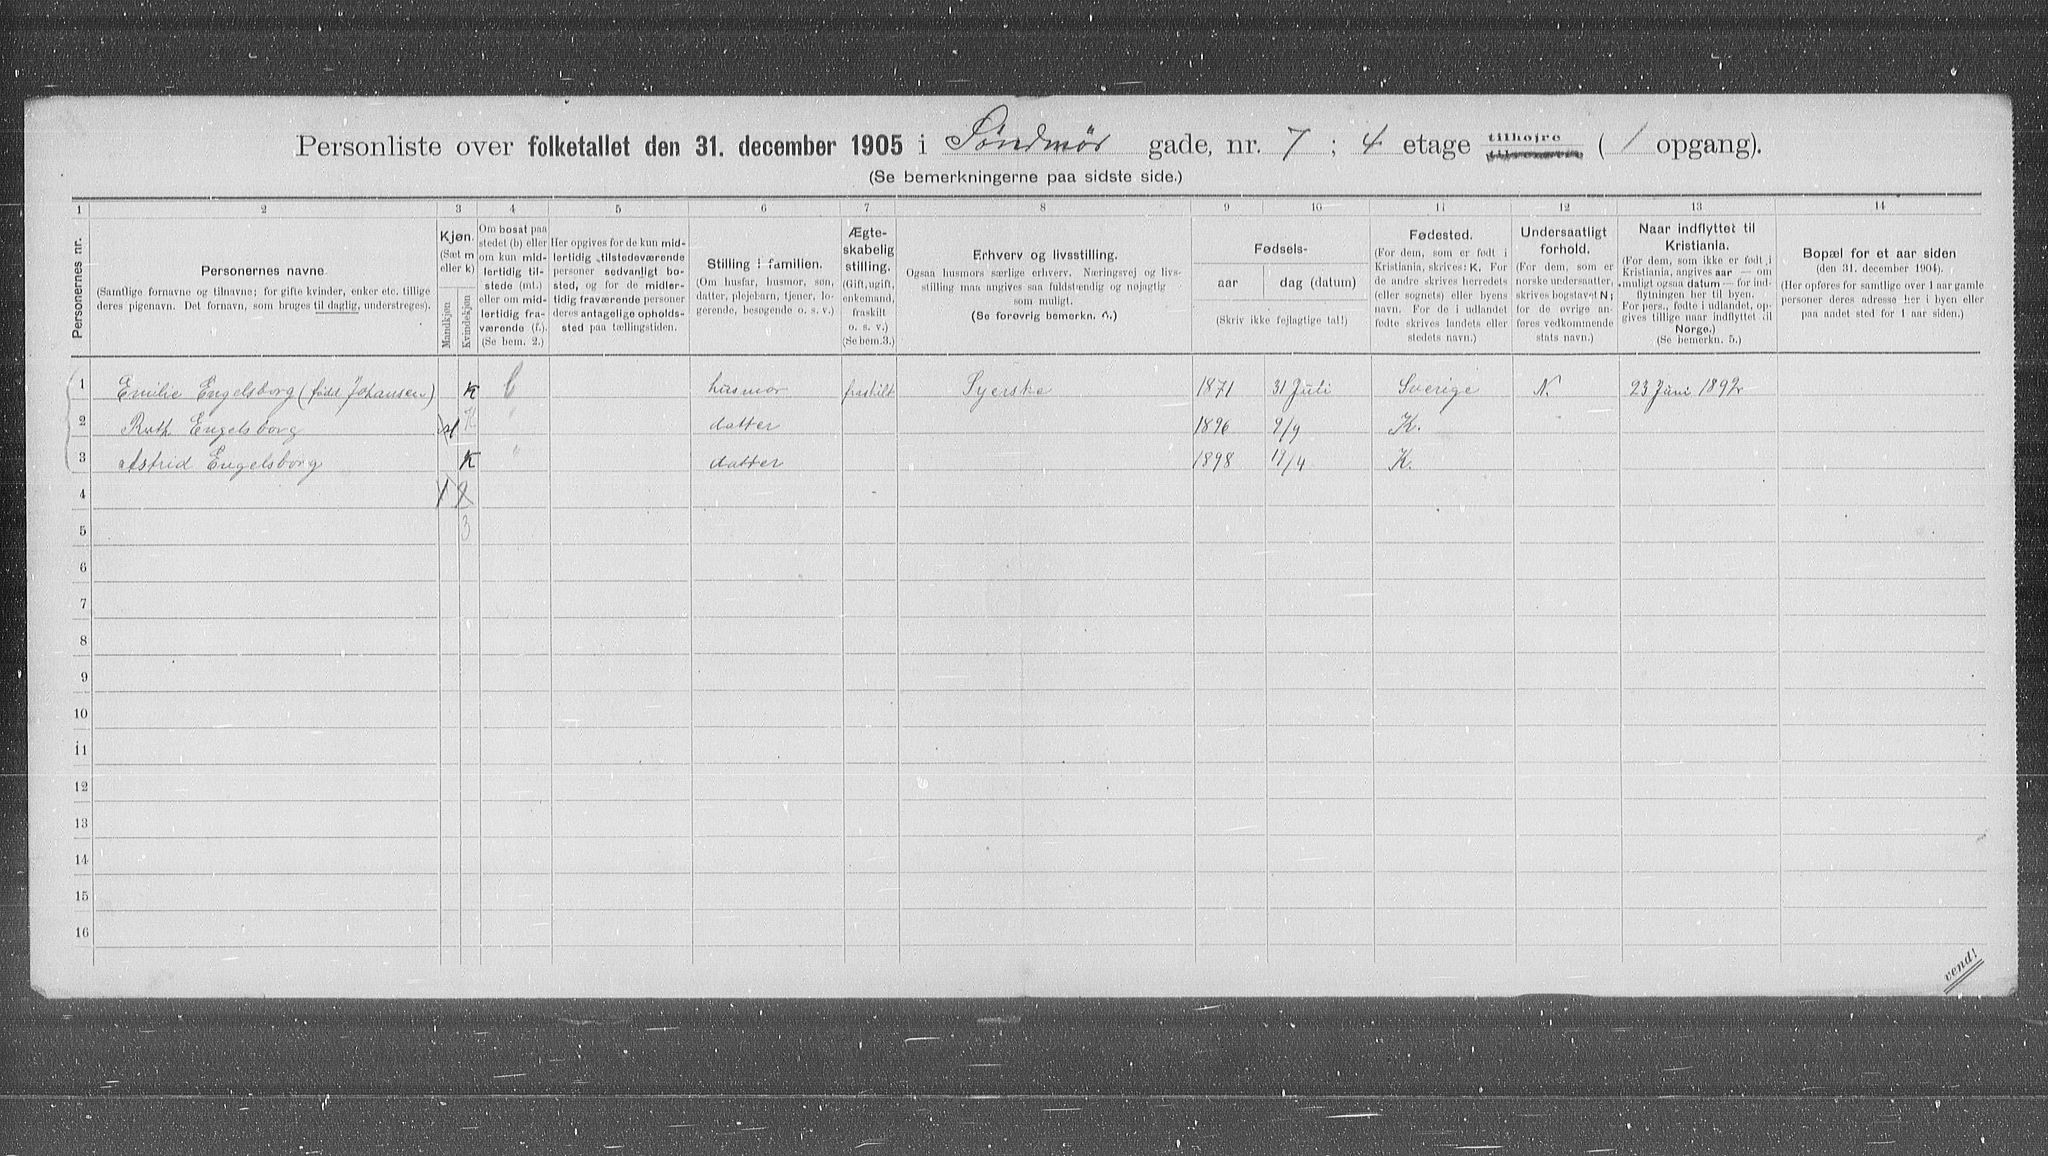 Personliste over folketallet den 31. december 1905 i Søndmør gade, nr. 7 ; 4 etage tilhøjre (1 opgang).
(Se bemerkningerne paa sidste side.)
1 2 3 4 5 6 7 8 9 10 11 12 13 14
Personernes nr.
Personernes navne.
(Samtlige fornavne og tilnavne; for gifte kvinder, enker etc. tillige
deres pigenavn. Det fornavn, som bruges til daglig, understreges).
Kjøn.
(Sæt m
eller k)
Mandkjøn
Kvindekjøn
Om bosat paa
stedet (b) eller
om kun mid-
lertidig til-
stede (mt.)
eller om mid-
lertidig fra-
værende (f.).
(Se bem. 2.)
Her opgives for de kun mid-
lertidig tilstedeværende
personer sedvanligt bo-
sted, og for de midler-
tidig fraværende personer
deres antagelige opholds-
sted paa tællingstiden.
Stilling i familien.
(Om husfar, husmor, søn,
datter, plejebarn, tjener, lo-
gerende, besøgende o. s. v.)
Ægte-
skabelig
stilling.
(Gift, ugift,
enkemand,
fraskilt
o. s. v.)
(Se bem. 3.)
Erhverv og livsstilling.
Ogsaa husmors særlige erhverv. Næringsvej og livs-
stilling maa angives saa fuldstændig og nøjagtig
som muligt.
(Se forøvrig bemerkn. 4.)
Fødsels-
aar dag (datum)
(Skriv ikke fejlagtige tal!)
Fødested.
(For dem, som er født i
Kristiania, skrives: K. For
de andre skrives herredets
(eller sognets) eller byens
navn. For de i udlandet
fødte skrives landets eller
stedets navn.)
Undersaatligt
forhold.
(For dem, som er
norske undersaatter,
skrives bogstavet N;
for de øvrige an-
føres vedkommende
stats navn.)
Naar indflyttet til
Kristiania.
(For dem, som ikke er født i
Kristiania, angives aar — om
muligt ogsaa datum — for ind-
flytningen her til byen.
For pers., fødte i udlandet, op-
gives tillige naar indflyttet til
Norge.)
(Se bemerkn. 5.)
Bopæl for et aar siden
(den 31. december 1904).
(Her opføres for samtlige over 1 aar gamle
personer deres adresse her i byen eller
paa andet sted for 1 aar siden.)
1 Emilie Engelsborg (født Johansen) K b husmor fraskilt Syerske 1871 31 Juli Sverige N. 23 Juni 1892
2 Ruth Engelsborg K " datter 1896 9/9 K.
3 Astrid Engelsborg K " datter 1898 19/4 K.
4 1 2
5 3
6
7
8
9
10
11
12
13
14
15
16
vend!